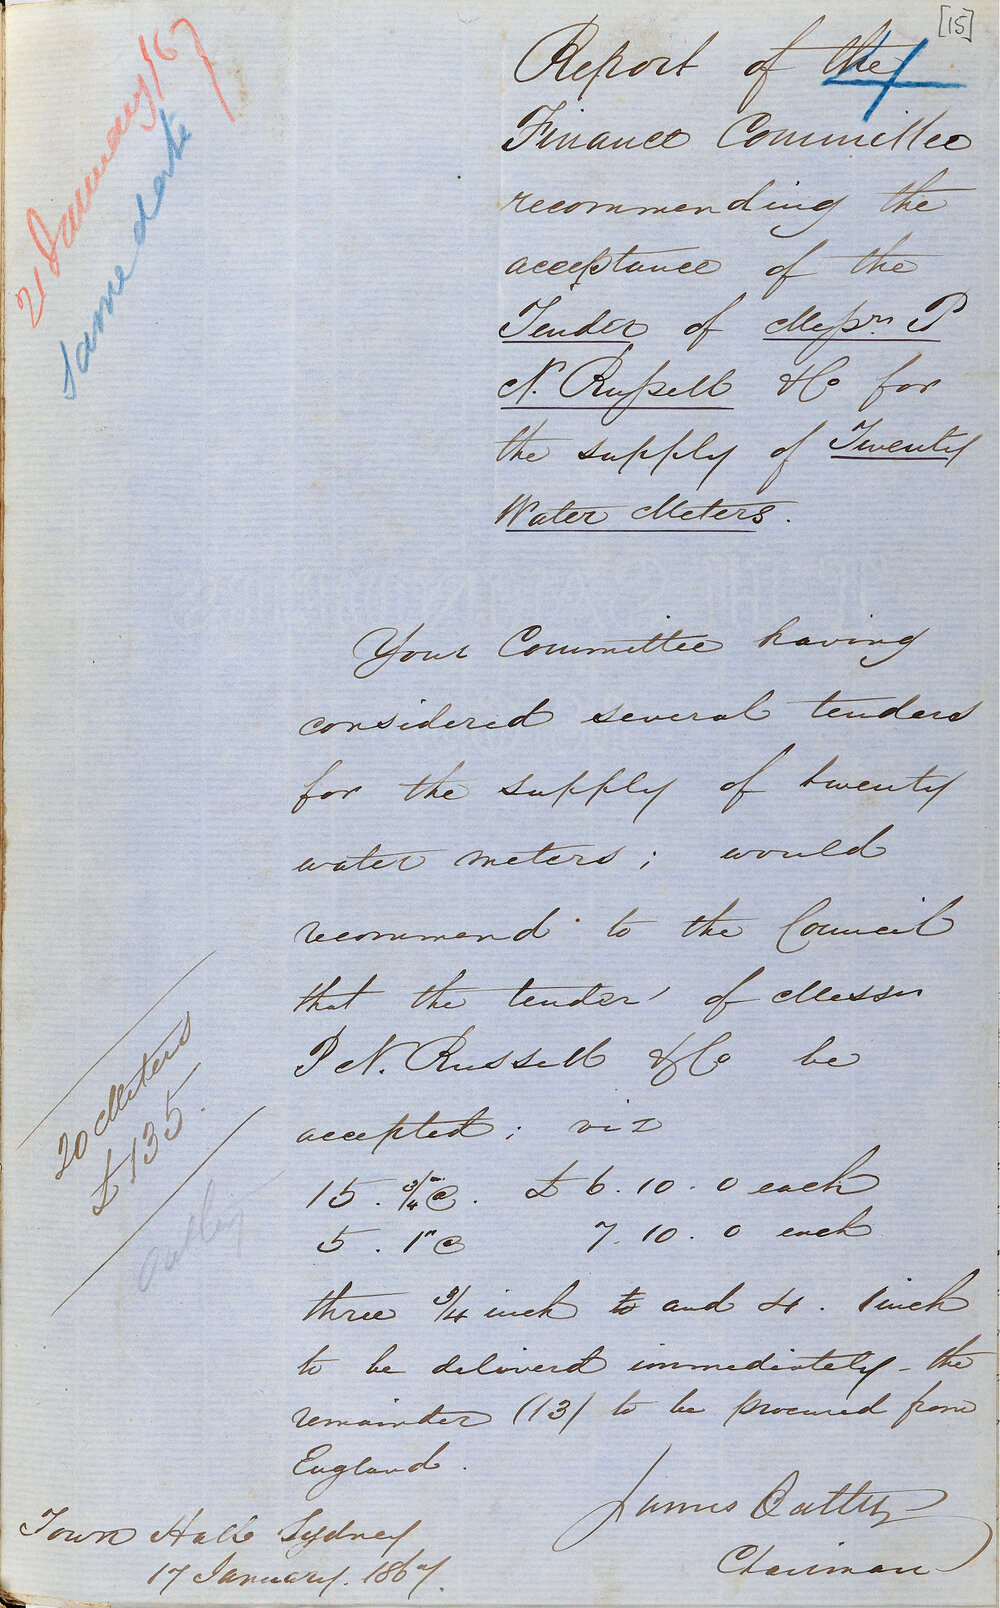 [15]
21 January/67
same date
Report of the
Finance Committee
recommending the
acceptance of the
Tender of Messrs. P
N. Russell & Co for
the supply of Twenty
Water Meters.
Your Committee having
considered several tenders
for the supply of twenty
water meters; would
recommend to the Council
that the tender of Messrs
P N. Russell & Co be
accepted; viz
15. 3/4" @. £ 6. 10. 0 each
5. 1" @ 7. 10. 0 each
three 3/4 inch to and 4. 1 inch
to be deliverd immediately - the
remainder (13) to be procured from
England.
20 Meters
£135.
Oatley
James Oatley
Chairman
Town Hall Sydney
17 January. 1867.